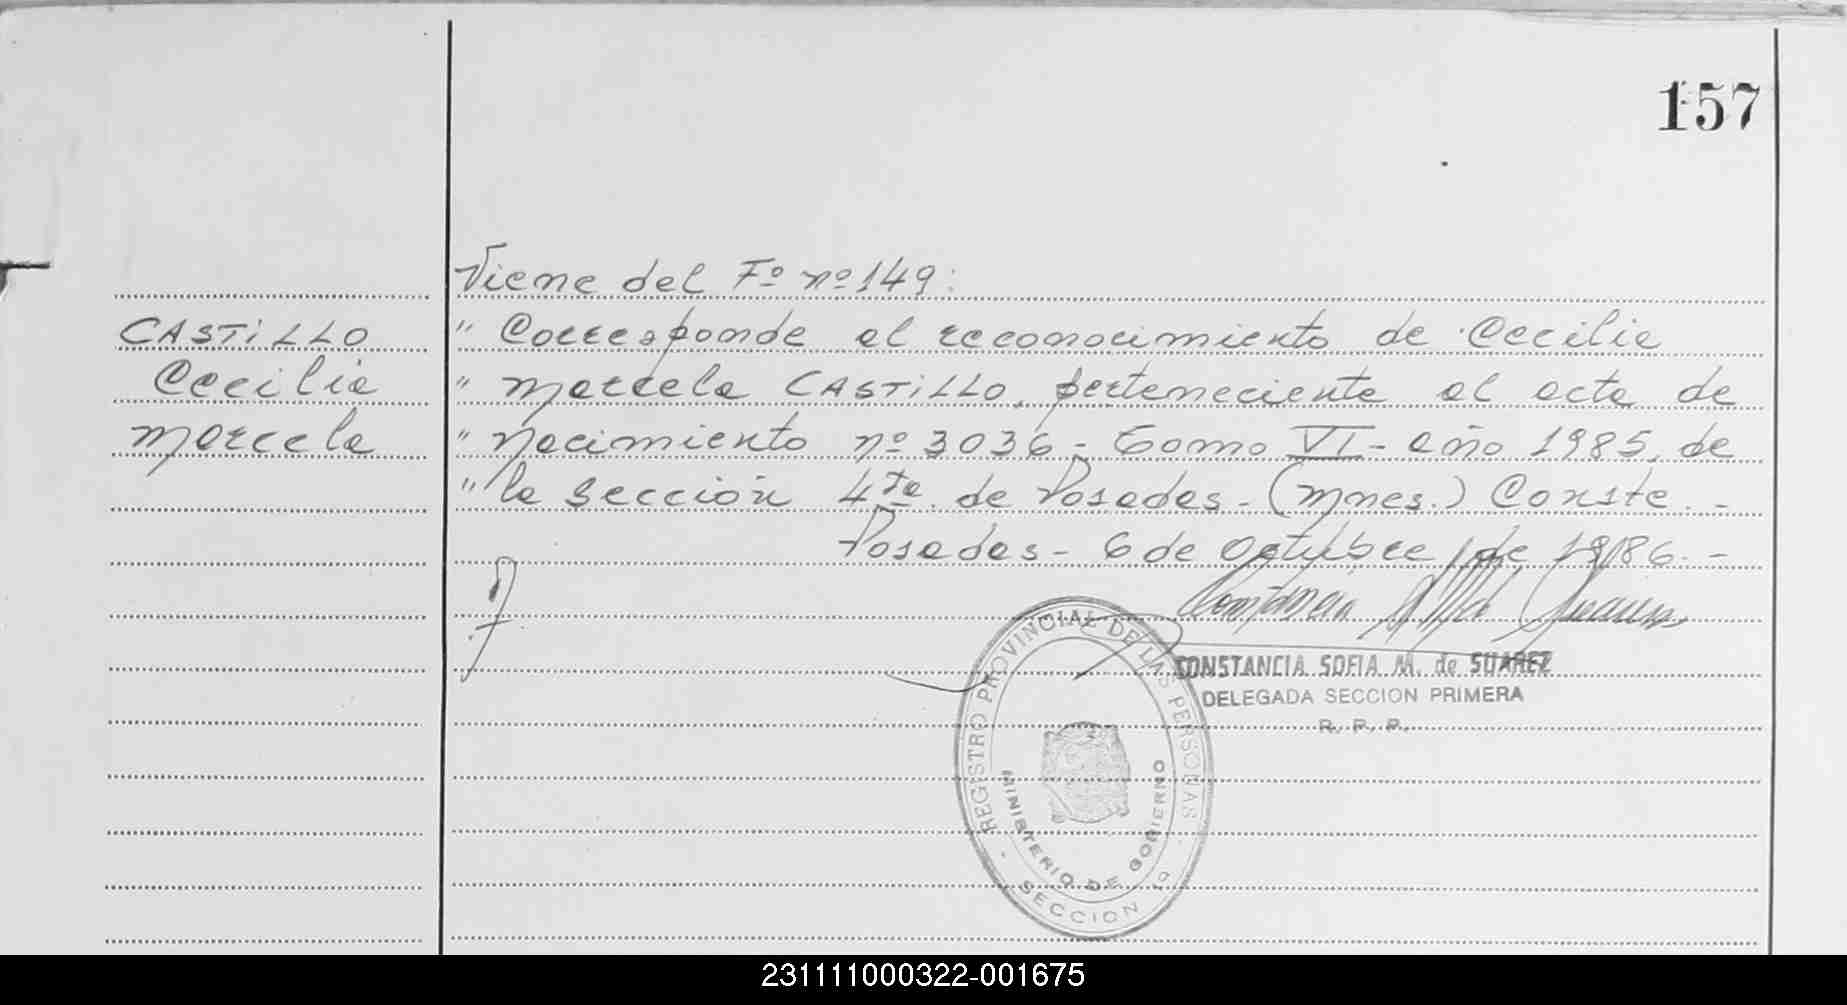 157
Viene del Fº nº 149:
CASTiLLO
Cecilia
Marcela
" Corresponde al reconocimiento de Cecilia
" Marcela CASTiLLO, perteneciente al acta de
" Nacimiento nº 3036 - Tomo VI - año 1985, de
" la Sección 4ta. de Posadas - (Mnes.) Conste. -
Posadas - 6 de Octubre de 1986. -
Constancia Suarez
CONSTANCIA SOFIA M. de SUAREZ
DELEGADA SECCION PRIMERA
R. P. P.
REGISTRO PROVINCIAL DE LAS PERSONAS
MINISTERIO DE GOBIERNO
SECCION 1ª
231111000322-001675